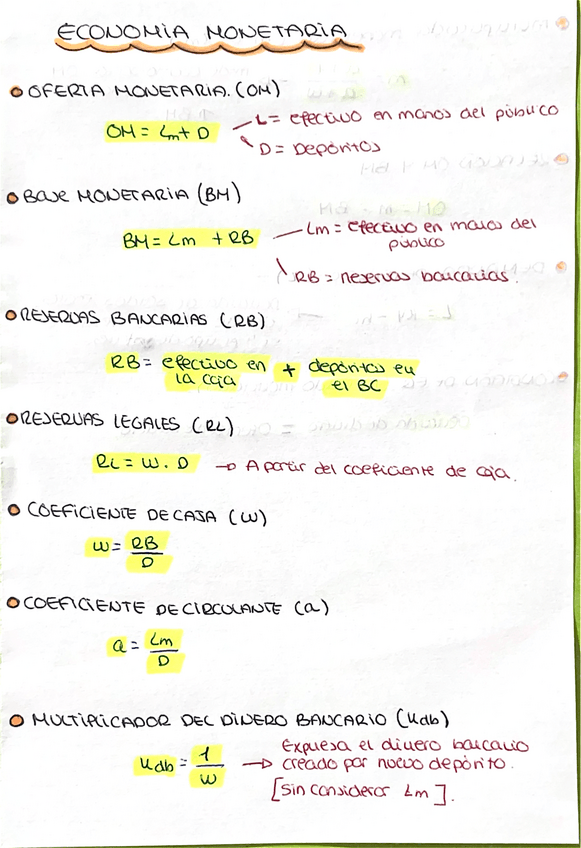 ECONOMIA MONETARIA
OFERTA MONETARIA. (OM)
OM = Lm + D
L = efectivo en manos del público
D = Depósitos
Base MONETARIA (BM)
BM = Lm + RB
Lm = efectivo en manos del
público
RB = reservas bancarias.
RESERVAS BANCARIAS (RB)
RB = efectivo en + depósitos en
la caja el BC
RESERVAS LEGALES (RL)
RL = W . D → A partir del coeficiente de caja.
COEFICIENTE DE CAJA (W)
W = RB
D
COEFICIENTE DE CIRCULANTE (a)
a = Lm
D
MULTIPLICADOR DEL DINERO BANCARIO (Kdb)
Kdb = 1
W
→ Expresa el dinero bancario
creado por nuevo depósito.
[Sin considerar Lm].